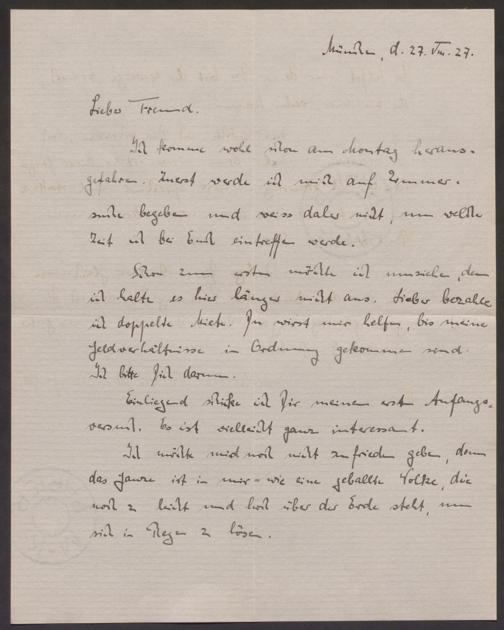 München, d. 27. VIII. 27.
Lieber Freund.
Ich komme wohl schon am Montag heraus-
gefahren. Zuerst werde ich mich auf Zimmer-
suche begeben und weiss daher nicht, um welche
Zeit ich bei Euch eintreffen werde.
Schon zum ersten möchte ich umziehen, denn
ich halte es hier länger nicht aus. Lieber bezahle
ich doppelte Miete. Du wirst mir helfen, bis meine
Geldverhältnisse in Ordnung gekommen sind.
Ich bitte Dich darum.
Einliegend schicke ich Dir meinen erst Anfangs-
versuch. Es ist vielleicht ganz interessant.
Ich möchte mich noch nicht zufrieden geben, denn
das Ganze ist in mir - wie eine geballte Wolke, die
noch zu leicht und hoch über der Erde steht, um
sich in Regen zu lösen.